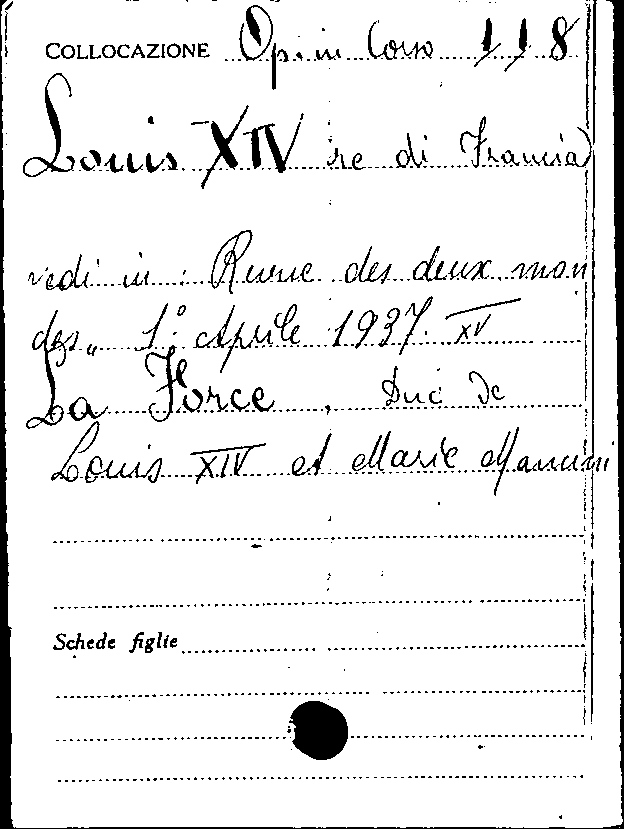 COLLOCAZIONE Op. in Corso 118
Louis XIV re di Francia
vedi in : Revue des deux mon
des„ 1° Aprile 1937. XV
La Force, Duc De
Louis XIV et Marie Mancini
Schede figlie